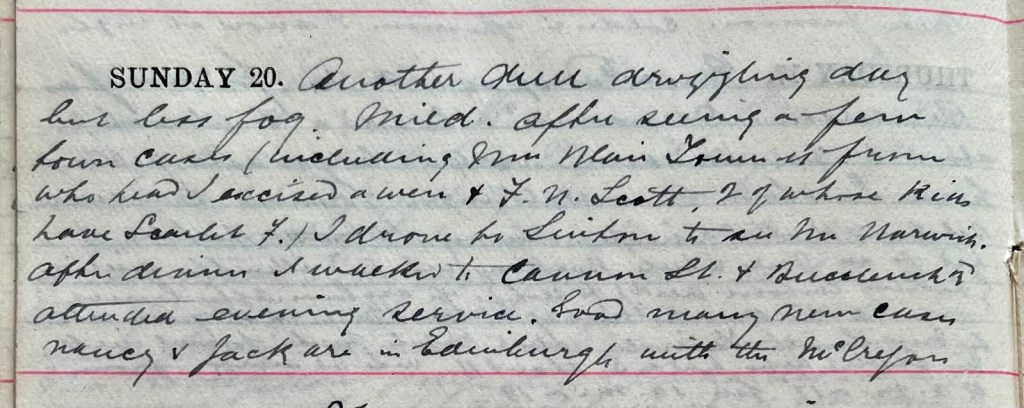 SUNDAY 20. Another dull drizzling day
but less fog. Mild. After seeing a few
town cases (including Mrs Blair Tower St from
who head I excised a wen & F. N. Scott, 2 of whose kids
have Scarlet F.) I drove to Linton to see Mr Warwick.
After dinner I walked to Cannon St. & Buccleuch St
attended evening service. Good many new cases
Nancy & Jack are in Edinburgh with the McGregors